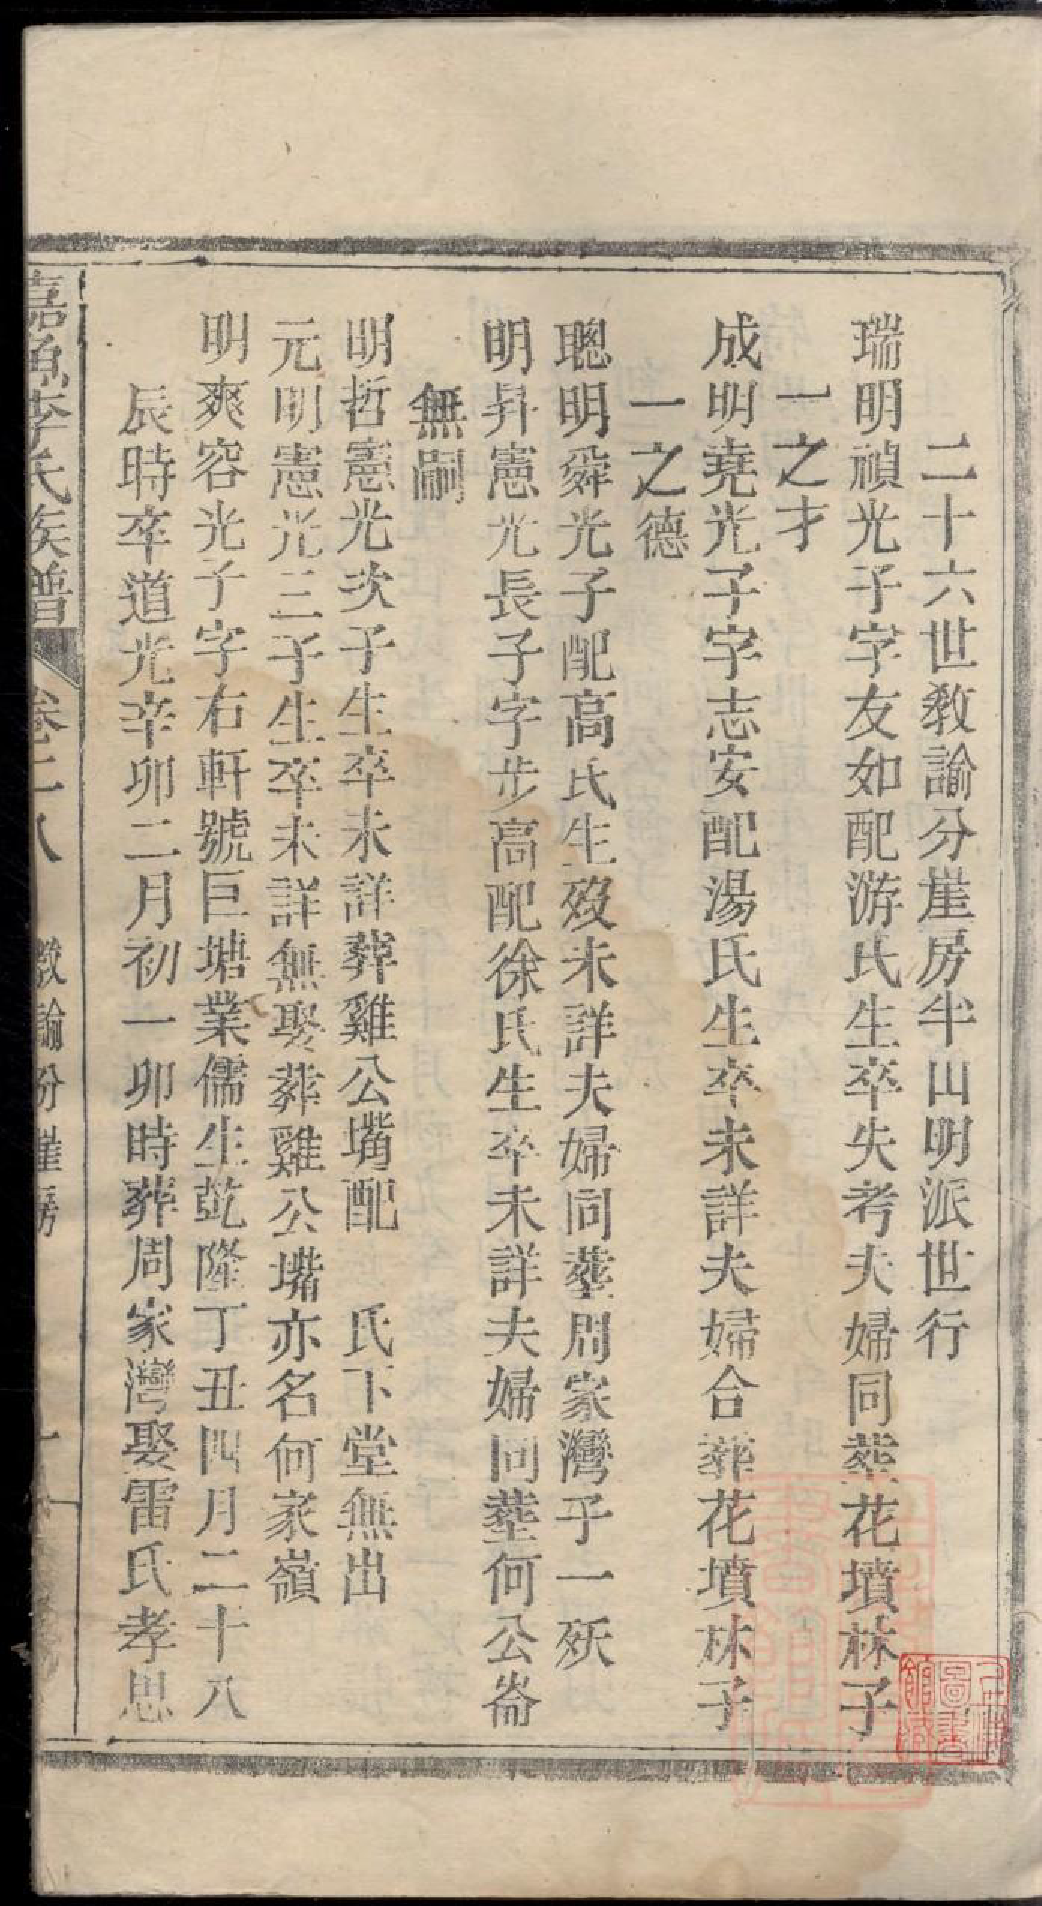 二十六世敎諭分崖房半山明派世行
瑞明禎光子字友如配游氏生卒失考夫婦同塟花墳林子
一之才
成明堯光子字志安配湯氏生卒未詳夫婦合葬花墳林子
一之德
聰明舜光子配高氏生歿未詳夫婦同塟周家灣子一殀
明昇憲光長子字步高配徐氏生卒未詳夫婦同塟何公崙
無嗣
明哲憲光次子生卒未詳葬雞公嘴配　氏下堂無出
元明憲光三子生卒未詳無娶葬雞公嘴亦名何家嶺
明爽容光子字右軒號巨塘業儒生乾隆丁丑四月二十八
辰時卒道光辛卯二月初一卯時葬周家灣娶雷氏孝思
嘉魚李氏族譜　卷二八　敎諭分崖房